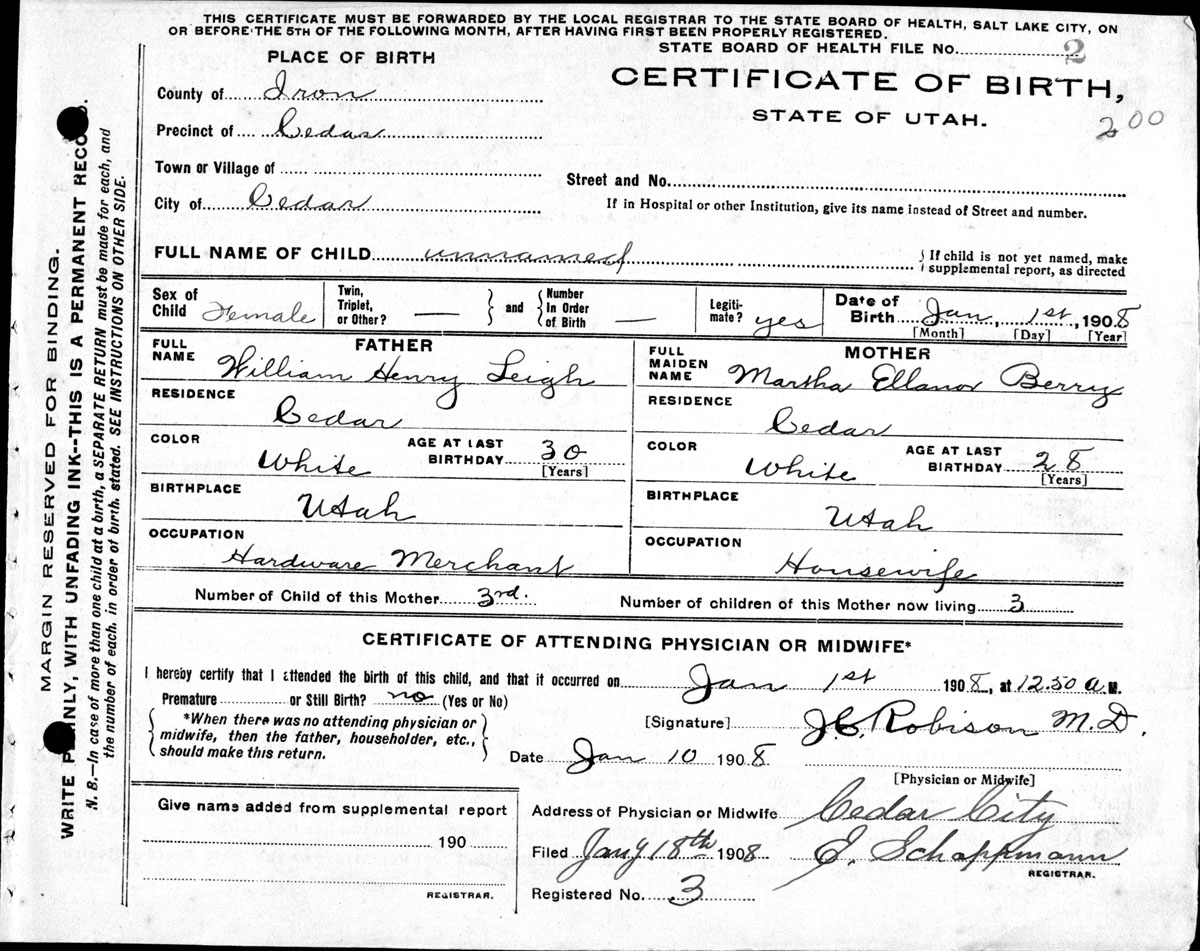 THIS CERTIFICATE MUST BE FORWARDED BY THE LOCAL REGISTRAR TO THE STATE BOARD OF HEALTH, SALT LAKE CITY, ON
OR BEFORE THE 5TH OF THE FOLLOWING MONTH, AFTER HAVING FIRST BEEN PROPERLY REGISTERED.
STATE BOARD OF HEALTH FILE No. 2
PLACE OF BIRTH
CERTIFICATE OF BIRTH,
STATE OF UTAH.
200
County of Iron
Precinct of Cedar
Town or Village of
City of Cedar
Street and No.
If in Hospital or other Institution, give its name instead of Street and number.
FULL NAME OF CHILD unnamed
{ If child is not yet named, make
supplemental report, as directed
Sex of Child Female
Twin, Triplet, or Other? — } and { Number In Order of Birth —
Legiti-mate? yes
Date of Birth Jan, 1st, 1908
[Month] [Day] [Year]
FATHER
FULL NAME William Henry Leigh
RESIDENCE
Cedar
COLOR White AGE AT LAST BIRTHDAY 30
[Years]
BIRTHPLACE
Utah
OCCUPATION
Hardware Merchant
MOTHER
FULL MAIDEN NAME Martha Ellanor Berry
RESIDENCE
Cedar
COLOR White AGE AT LAST BIRTHDAY 28
[Years]
BIRTHPLACE
Utah
OCCUPATION
Housewife
Number of Child of this Mother 3rd.
Number of children of this Mother now living 3
CERTIFICATE OF ATTENDING PHYSICIAN OR MIDWIFE*
I hereby certify that I attended the birth of this child, and that it occurred on Jan 1st 1908, at 12.50 a.M.
Premature or Still Birth? no (Yes or No)
{ *When there was no attending physician or
midwife, then the father, householder, etc.,
should make this return. }
[Signature] J.C. Robison M.D.
Date Jan 10 1908.
[Physician or Midwife]
Give name added from supplemental report
190
REGISTRAR.
Address of Physician or Midwife Cedar City
Filed Jany 18th 1908 E. Schoppmann
REGISTRAR.
Registered No. 3
MARGIN RESERVED FOR BINDING.
WRITE PLAINLY, WITH UNFADING INK--THIS IS A PERMANENT RECORD.
N. B.—In case of more than one child at a birth, a SEPARATE RETURN must be made for each, and
the number of each, in order of birth, stated. SEE INSTRUCTIONS ON OTHER SIDE.